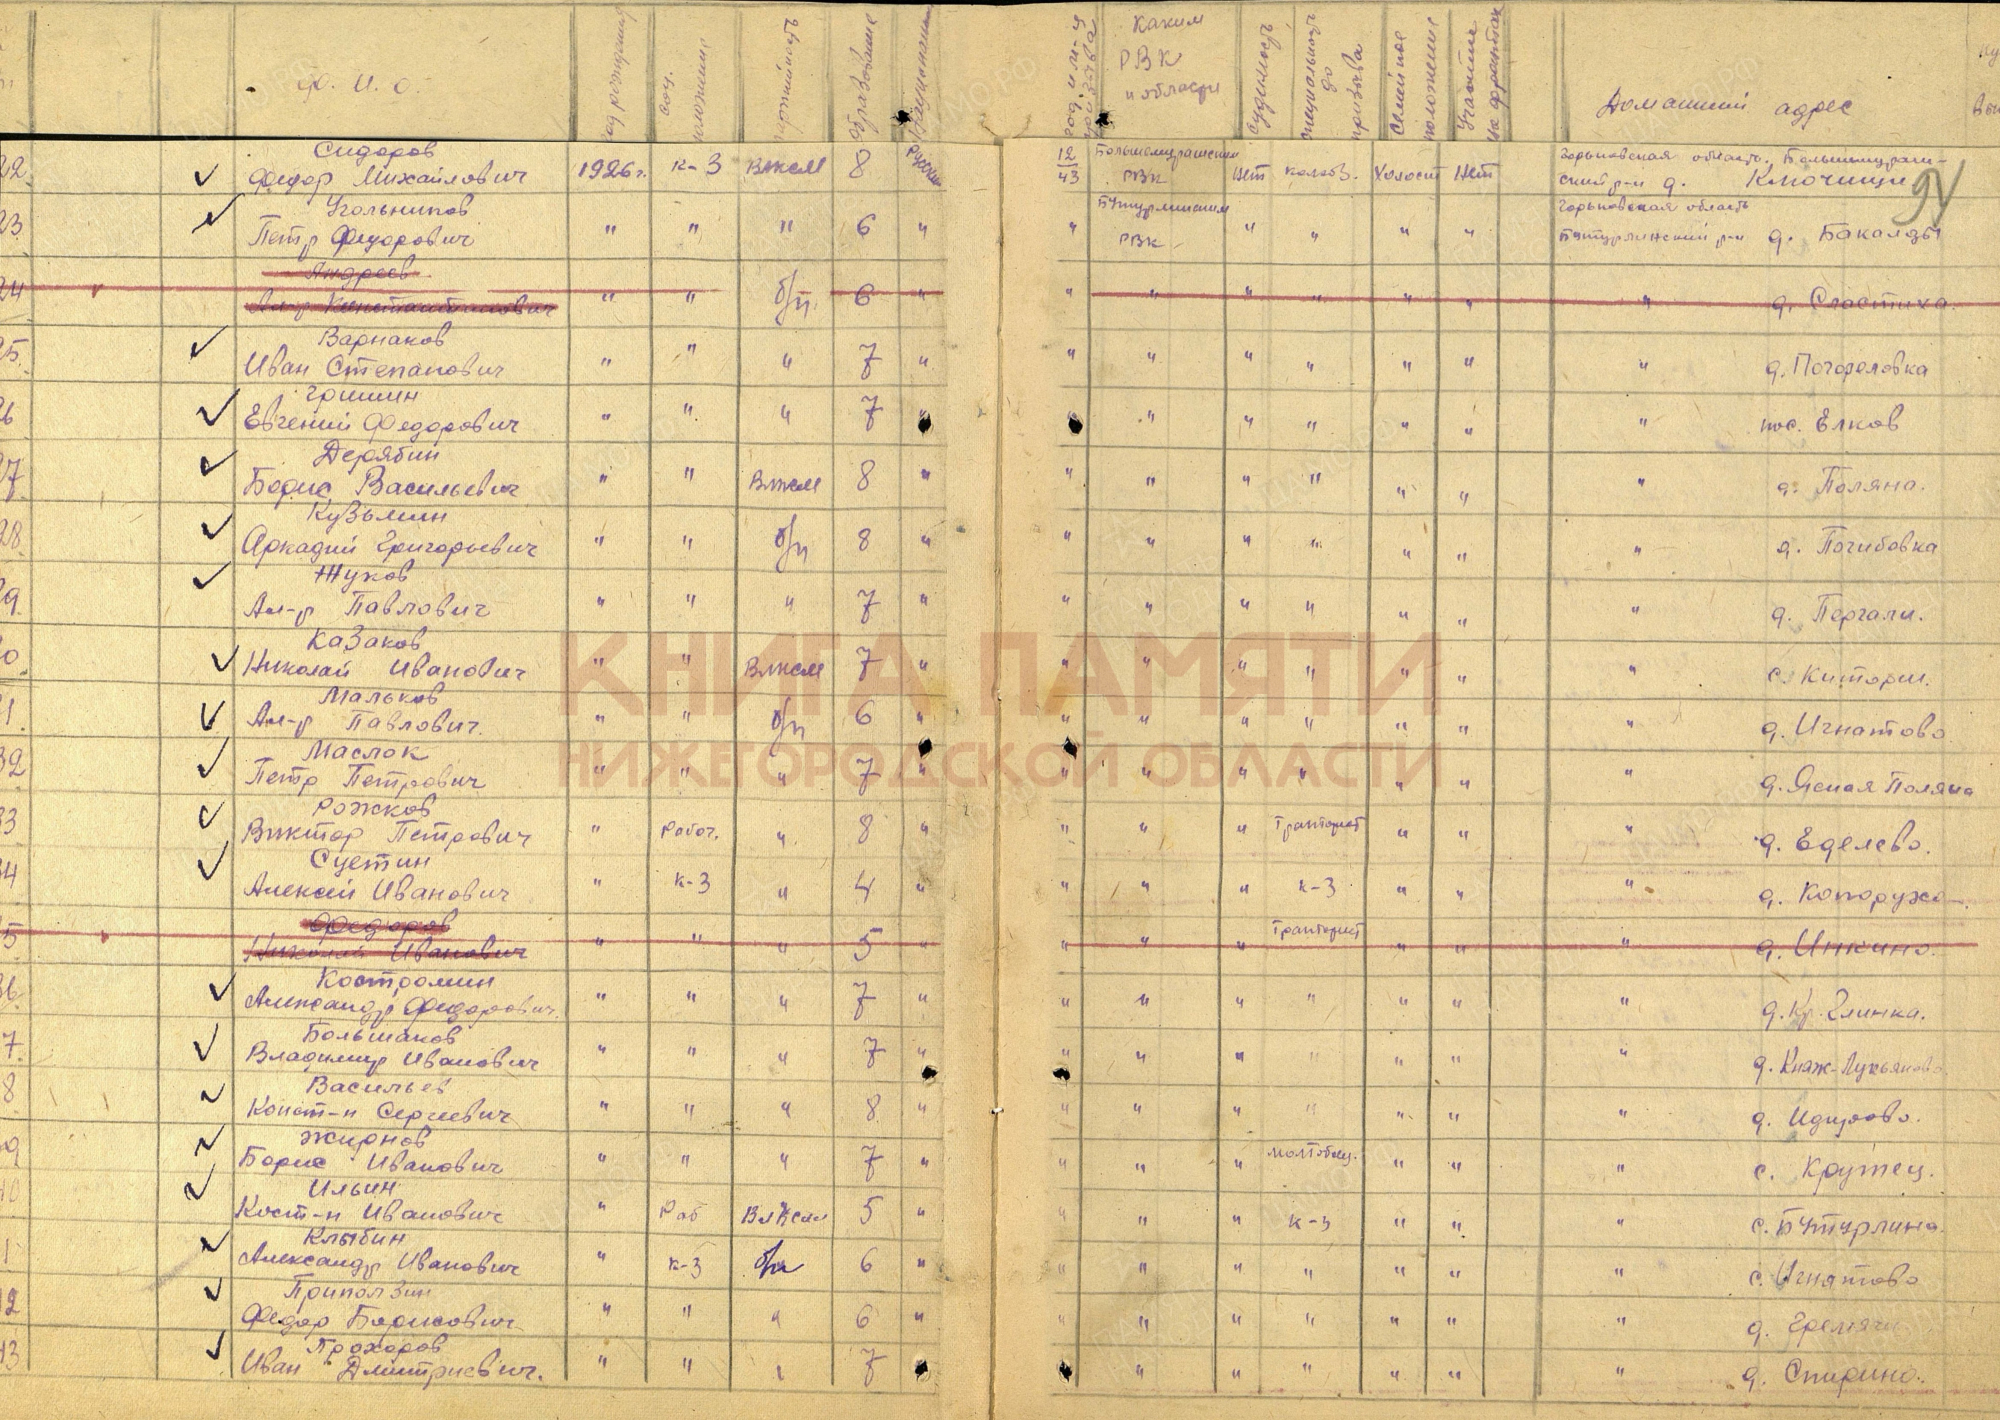 Ф. И. О. год рождения соц. положение партийность образование национальность год и м-ц призыва Каким РВК и области судимость специальность до призыва семейное положение Участие на фронтах Домашний адрес
22 Сидоров Горьковская область, Большемураш-
Федор Михайлович 1926 г. к-з ВЛКСМ 8 Русский 12/43 Большемурашким РВК нет колхоз. холост нет ский р-н д. Ключищи
94
23 Угольников Бутурлинским Горьковская область
Петр Федорович " " " 6 " " РВК " " " " Бутурлинский р-н д. Бакалды
24 Андреев
Ал-р Константинович " " б/п 6 " " " " " " " " д. Сластиха
25 Варнаков
Иван Степанович " " " 7 " " " " " " " " д. Погореловка
26 Гришин
Евгений Федорович " " " 7 " " " " " " пос. Елков
27 Дерябин
Борис Васильевич " " ВЛКСМ 8 " " " " " " " " д. Поляна.
28 Кузьмин
Аркадий Григорьевич " " б/п 8 " " " " " " " " д. Погибовка
29 Жуков
Ал-р Павлович " " " 7 " " " " " " " " д. Пергали.
30 Казаков
Николай Иванович " " ВЛКСМ 7 " " " " " " " " с. Китории.
31. Мальков
Ал-р Павлович. " " б/п 6 " " " " " " " " д. Игнатово
32 Маслок
Петр Петрович " " " 7 " " " " " " " " д. Ясная Поляна
33 Рожков
Виктор Петрович " Рабоч. " 8 " " " " Тракторист " " " д. Еделево.
34 Суетин
Алексей Иванович " к-з " 4 " " " " к-з " " " д. Копоружа
35 Федоров
Николай Иванович " " " 5 " " " " Тракторист " " " д. Инкино.
36 Костромин
Александр Федорович. " " " 7 " " " " " " " " д. Кр. Глинка.
37 Большаков
Владимир Иванович " " " 7 " " " " " " " " д. Княж-Лукьяново
38 Васильев
Конст-н Сергеевич " " " 8 " " " " " " " "
39 Жирнов
Борис Иванович " " " 7 " " " " молтобоец. " " " с. Крутец.
40 Ильин
Кост-н Иванович " Раб ВЛКСМ 5 " " " " к-з " " " с. Бутурлино.
41 Клыбин
Александр Иванович " к-з б/п 6 " " " " " " " " с. Игнатово
42 Приползин
Федор Борисович " " " 6 " " " " " " " " д. Гремячи
43 Прохоров
Иван Дмитриевич. " " " 7 " " " " " " " д. Спирино.
КНИГА ПАМЯТИ
НИЖЕГОРОДСКОЙ ОБЛАСТИ